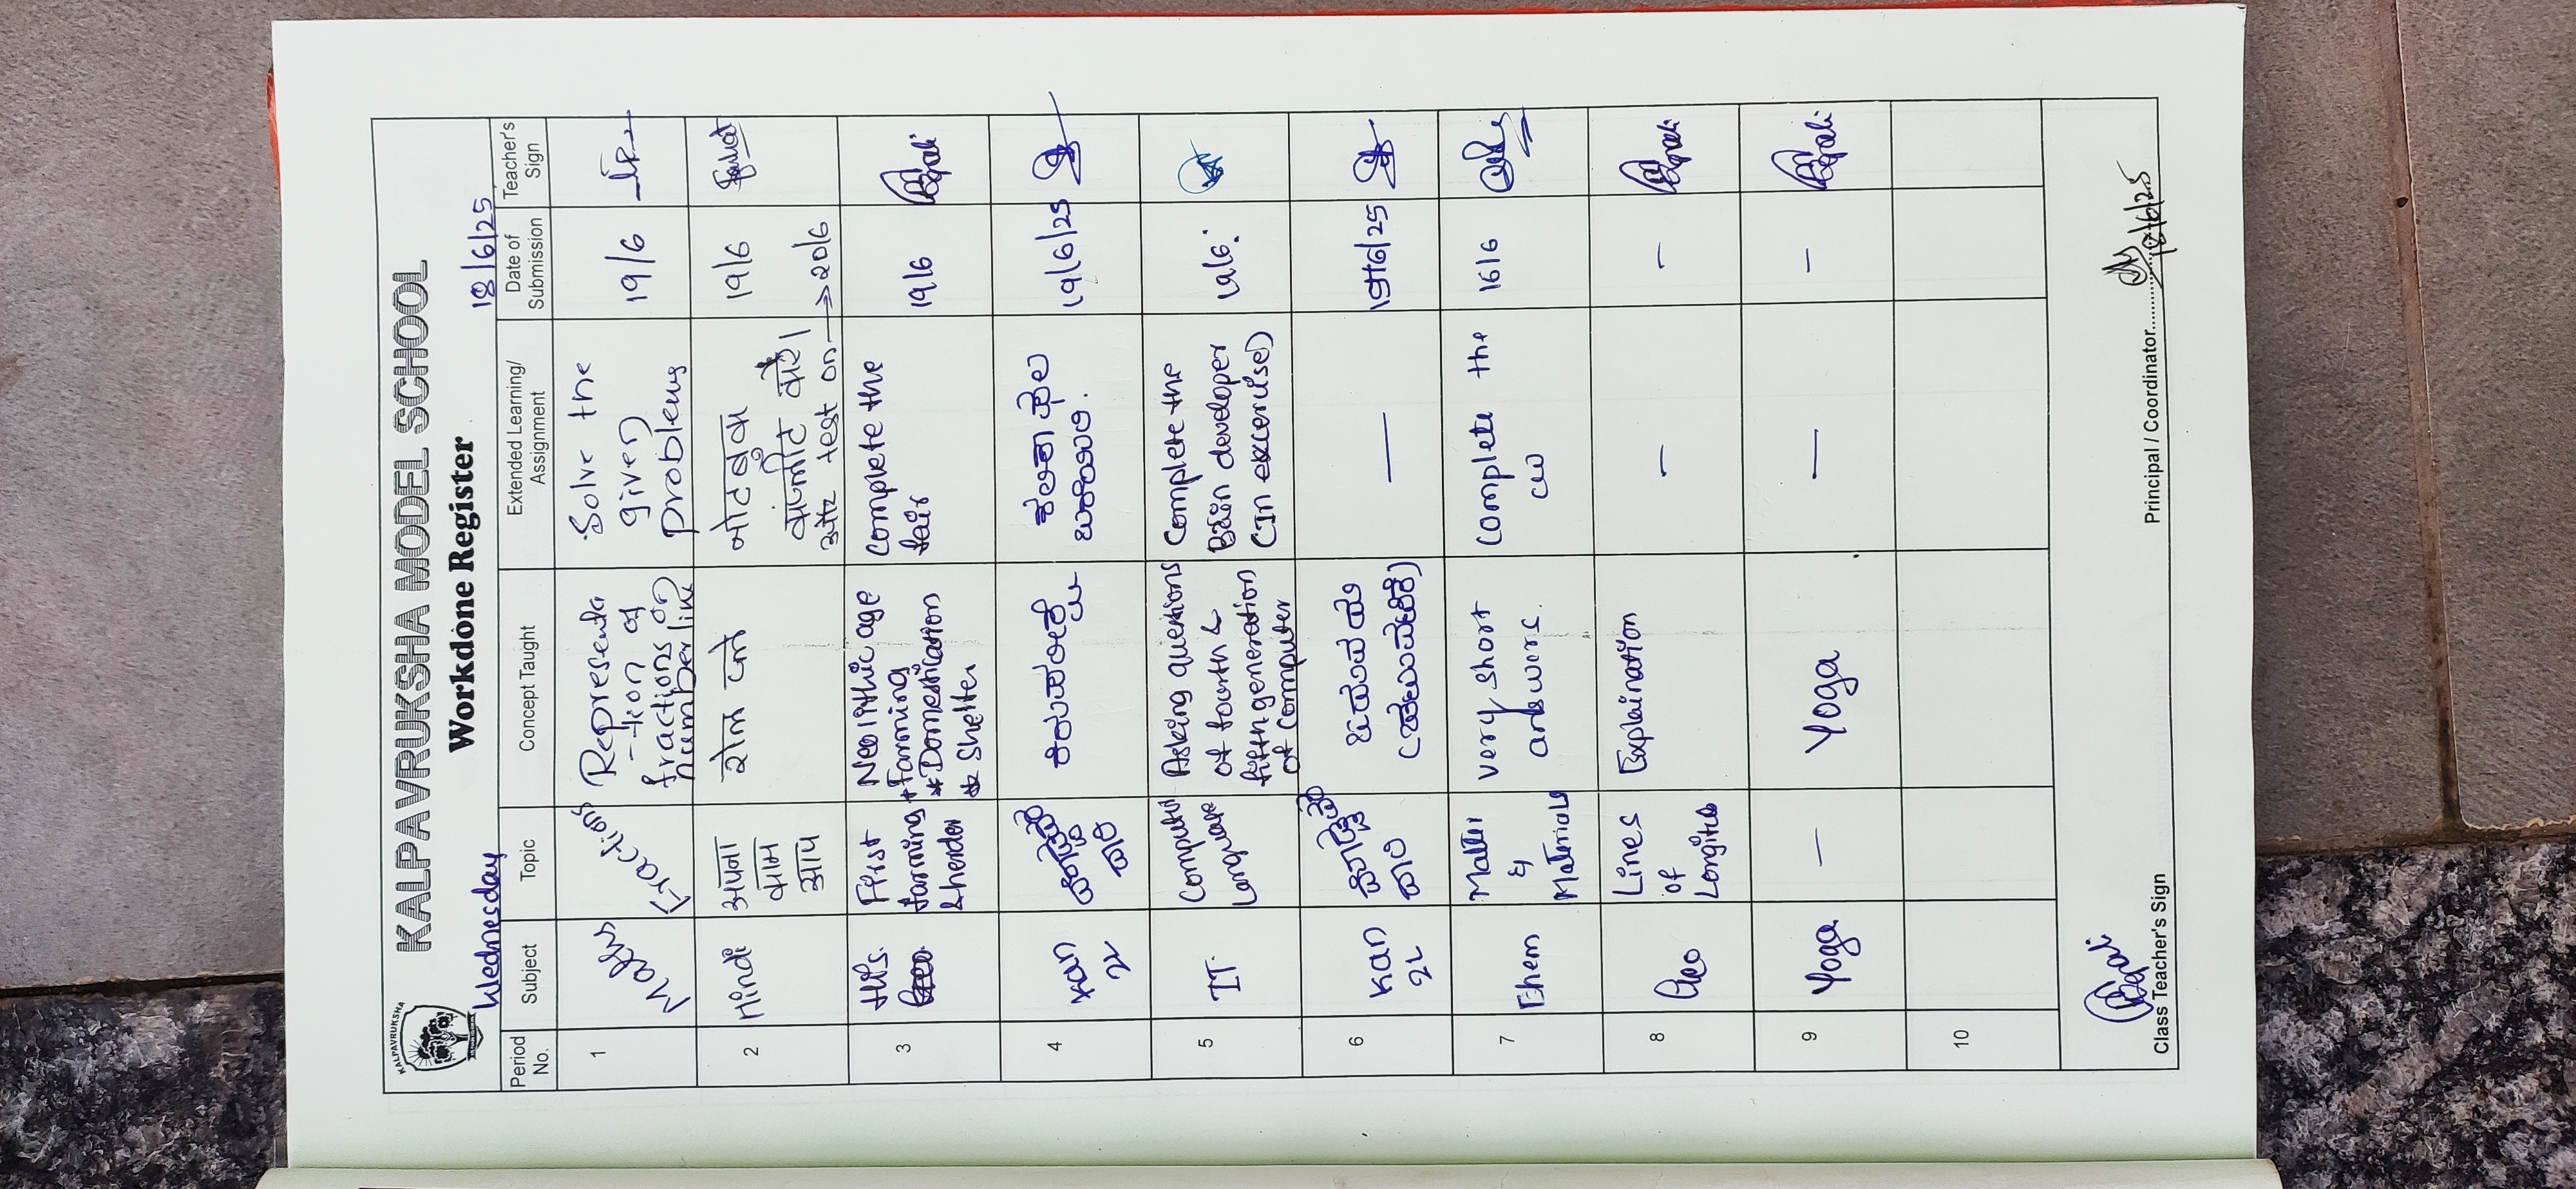 KALPAVRUKSHA
KALPAVRUKSHA MODEL SCHOOL
Workdone Register
Wednesday
18/6/25
Period No.
Subject
Topic
Concept Taught
Extended Learning/ Assignment
Date of Submission
Teacher's Sign
1
Maths
Fractions
Representa
-tion of
fractions on
number line
Solve the
given
problems
19/6
2
Hindi
अपना
काम
आप
रोल प्ले
नोट बुक
कंप्लीट करें।
और test on → 20/6
19/6
3
His.
First
farming
& herder
Neolithic age
* Farming
* Domestication
* Shelter
Complete the
fair
19/6
4
Kan
2L
ಕಿರುಪರೀಕ್ಷೆ
ಕಲಿಕಾ ಫಲ
ಬರೆಯಿರಿ.
19/6/25
5
IT.
Computer
Language
Asking questions
of fourth &
fifth generation
of Computer
Complete the
Brain developer
(In excerise)
19/6.
6
Kan
2L
—
19/6/25
7
Chem
Matter
&
Materials
very short
answers.
Complete the
CW
16/6
8
Geo
Lines
of
Longitude
Explaination
—
—
9
Yoga
—
Yoga
—
—
10
Class Teacher's Sign
Principal / Coordinator
18/6/25